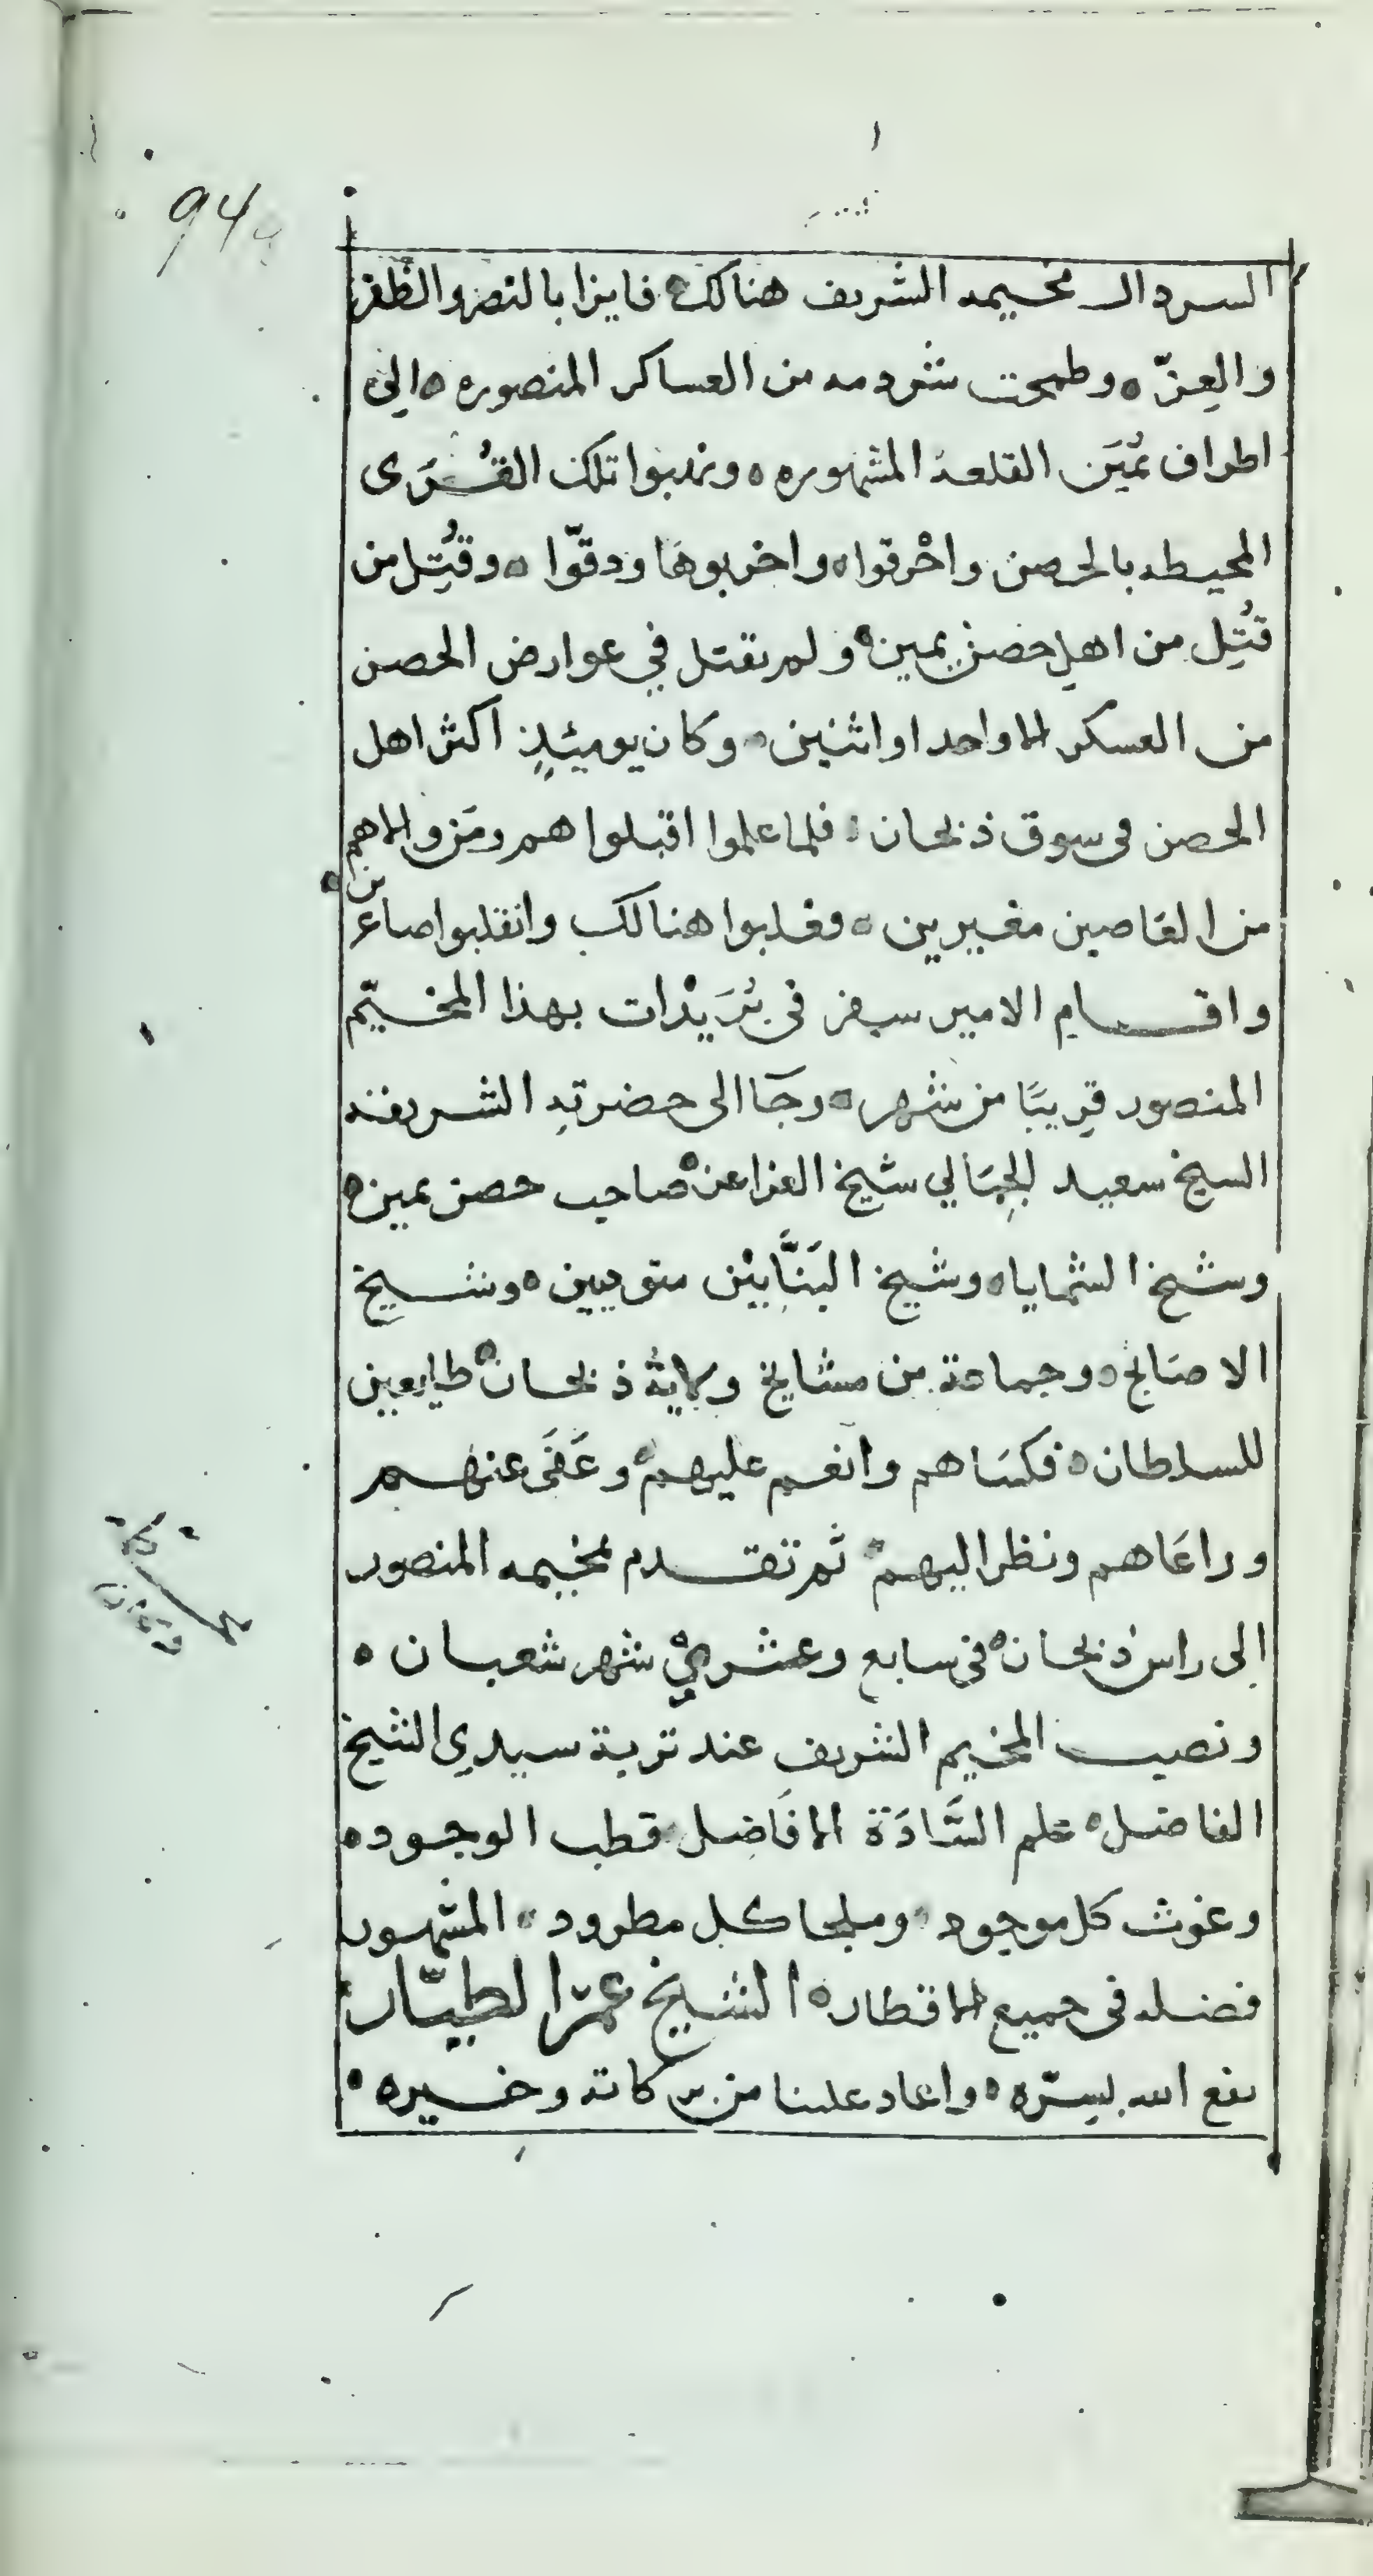 94
السرد الى مخيمه الشريف هنالك فايزا بالنصر والظفر
والعِزّ ه وطمحت شردمه من العساكر المنصوره ه الى
اطراف يُمَين القلعة المشهوره ه ونهبوا تلك القُرَى
المحيطه بالحصن واحْرقوا ه واخربوهَا ودقّوا ه وقُتِل من
قُتِل من اهل حصن يمين ه ولم يقتل في عوارض الحصن
من العسكر الا واحد او اثنين ه وكان يوميئِذٍ اكثر اهل
الحصن فى سوق ذبحان ه فلما علموا اقبلوا هم ومَن والاهم
من العَاصين مغيرين ه وغلبوا هنالك وانقلبوا صاغرين ه
واقام الامير سفر فى بُرَيْدات بهذا المخيّم
المنصور قريبًا من شهر ه وجَا الى حضرتِه الشريفه
السيخ سعيد الجِبَالي شيخ العزاعز ه صاحب حصن يمين ه
وشيخ الشمايا ه وشيخ البَنَّابيْن ه وشيخ
الاصَابح ه وجماعة من مشايخ ولاية ذبحان ه طايعين
للسلطان ه فكسَاهم وانعم عليهم ه وعَفَى عنهم
وراعَاهم ونظر اليهم ه ثم تقدم بمخيمه المنصور
اِلى راس ذبحان ه فى سابع وعشريْ شهر شعبان ه
ونصب المخيم الشريف عند تربة سيدي الشيخ
الفاضل ه علم السَّادَة الافَاضِل ه قطب الوجود ه
وغوث كل موجود ه وملجا كل مطرود ه المشهور
فضله فى جميع الاقطار ه الشيخ عمر الطيّار ه
نفع الله بسِرّه ه واعاد علينا من بركاته وخيره ه